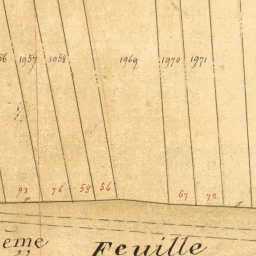 56 1957 1058 1969 1970 1971
93 76 59 56 67 70
eme Feuille